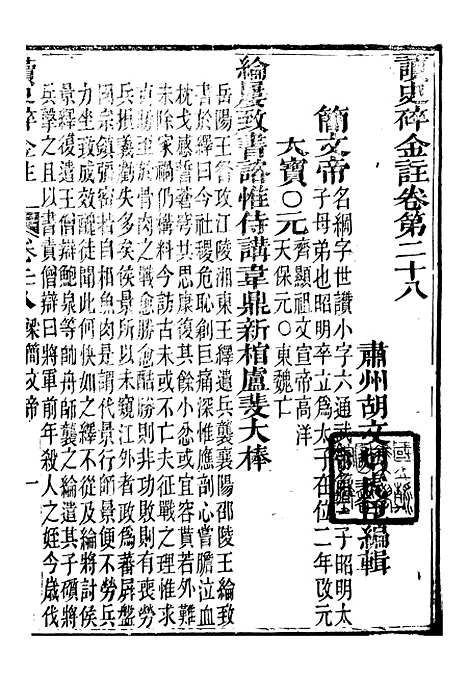 讀史碎金註卷第二十八
肅州胡文炳 編輯
簡文帝名綱字世讚小字六通武帝第三子昭明太
子母弟也昭明卒立爲太子在位二年改元
大寶〇元齊顯祖文宣帝高洋
天保元〇東魏亡
綸屢致書諮惟侍講韋鼎新棺盧斐大棒
岳陽王詧攻江陵湘東王繹遣兵襲襄陽邵陵王綸致
書於繹曰今社稷危恥創巨痛深惟應剖心嘗膽泣血
枕戈感誓蒼穹其思康復其餘小忿或宜容貰若外難
未除家禍仍構料今訪古未或不亡夫征戰之理惟求
克勝至於骨肉之戰愈勝愈酷捷則非功敗則有喪勞
兵損義虧失多矣侯景所以未窺江外者政爲藩屏盤
固宗鎮彌密若自相魚肉是代景行師景便不勞兵
力坐致成效醜徒聞此何快如之繹不從及綸將討侯
景繹使僧辯鮑泉等帥舟師襲之綸遣其子礩將
兵擊之且以書責僧辯曰將軍前年殺人之姪今歲伐
讀史碎金註 卷二十八 梁簡文帝 一